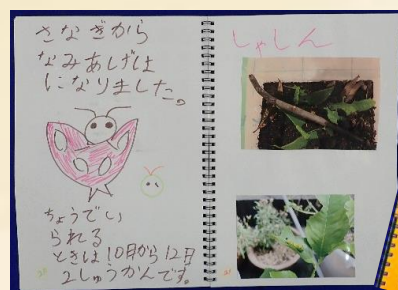 さなぎから
なみあげは
になりました。
ちょうでい
られる
ときは10日から12日
2しゅうかんです。
しゃしん